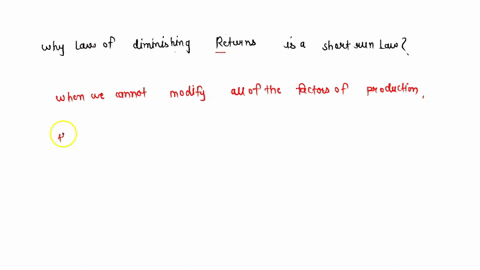 why Law of diminishing Returns is a short run Law?
when we cannot modify all of the factors of production,